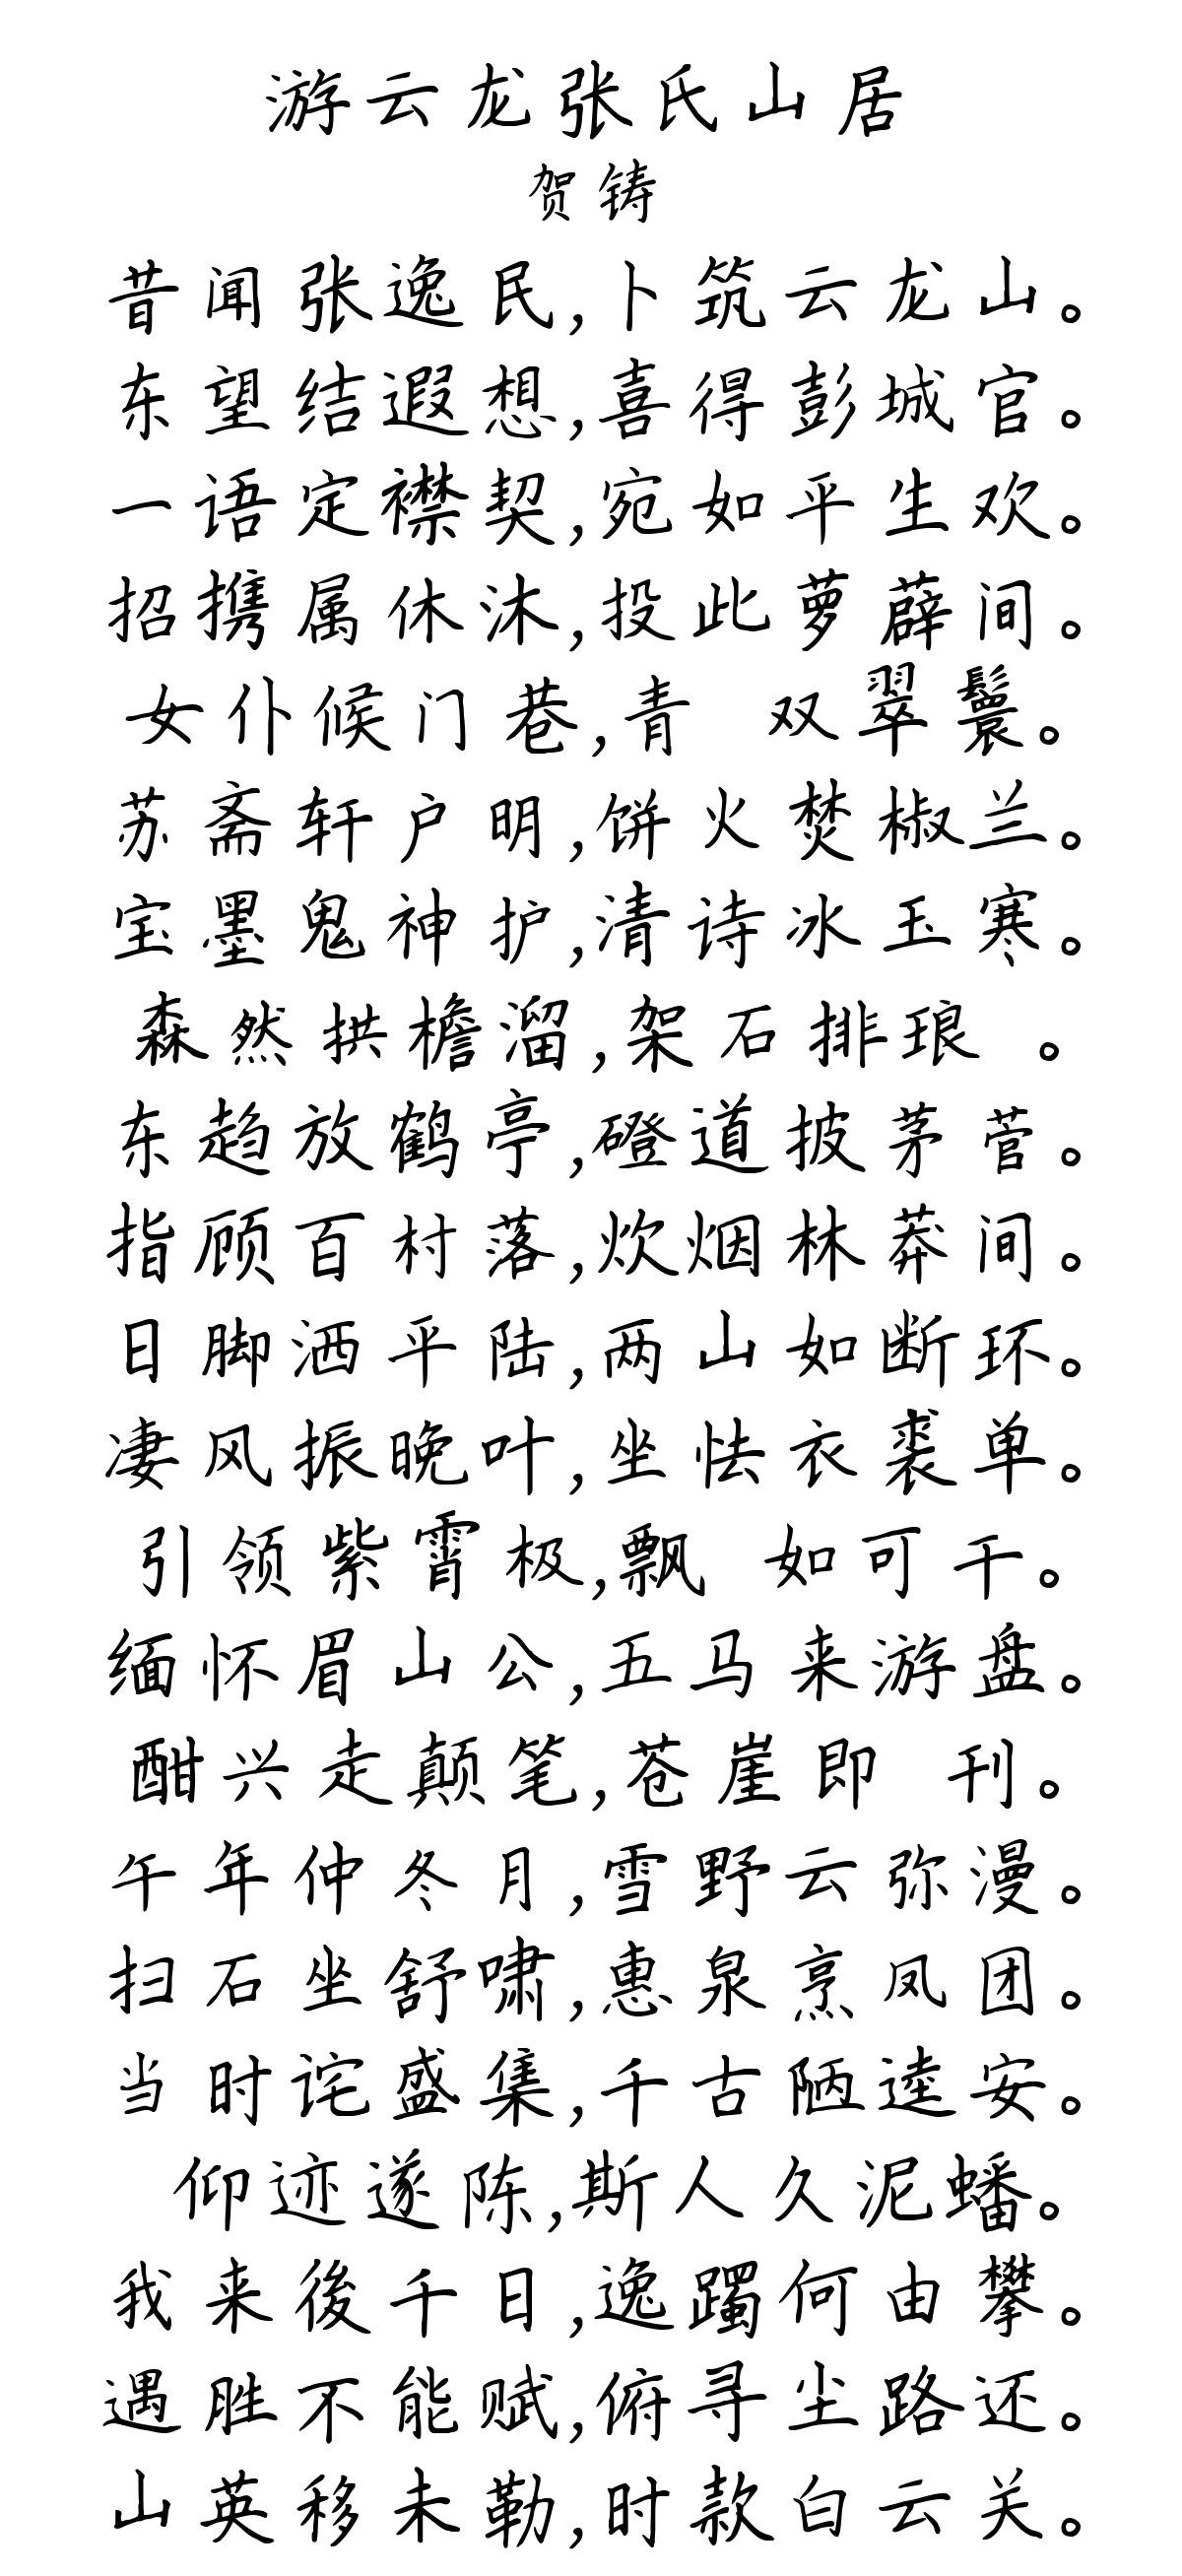 游云龙张氏山居
贺铸
昔闻张逸民,卜筑云龙山。
东望结遐想,喜得彭城官。
一语定襟契,宛如平生欢。
招携属休沐,投此萝薜间。
女仆候门巷,青 双翠鬟。
苏斋轩户明,饼火焚椒兰。
宝墨鬼神护,清诗冰玉寒。
森然拱檐溜,架石排琅 。
东趋放鹤亭,磴道披茅菅。
指顾百村落,炊烟林莽间。
日脚洒平陆,两山如断环。
凄风振晚叶,坐怯衣裘单。
引领紫霄极,飘 如可干。
缅怀眉山公,五马来游盘。
酣兴走颠笔,苍崖即 刊。
午年仲冬月,雪野云弥漫。
扫石坐舒啸,惠泉烹凤团。
当时诧盛集,千古陋逵安。
仰迹遂陈,斯人久泥蟠。
我来後千日,逸躅何由攀。
遇胜不能赋,俯寻尘路还。
山英移未勒,时款白云关。